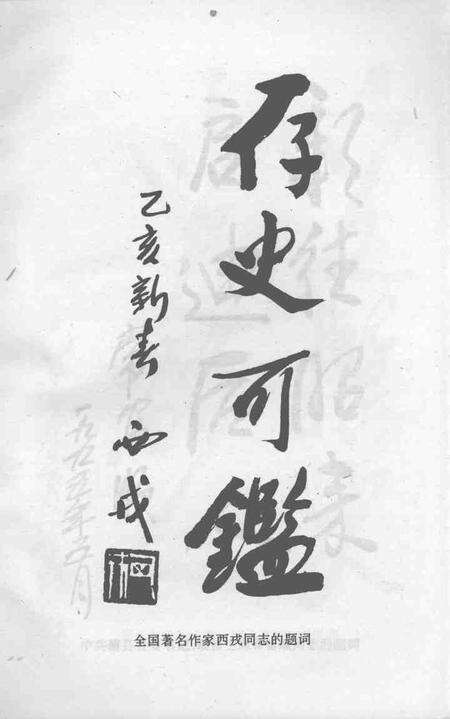 存史可鑑
乙亥新春
西戎
全国著名作家西戎同志的题词